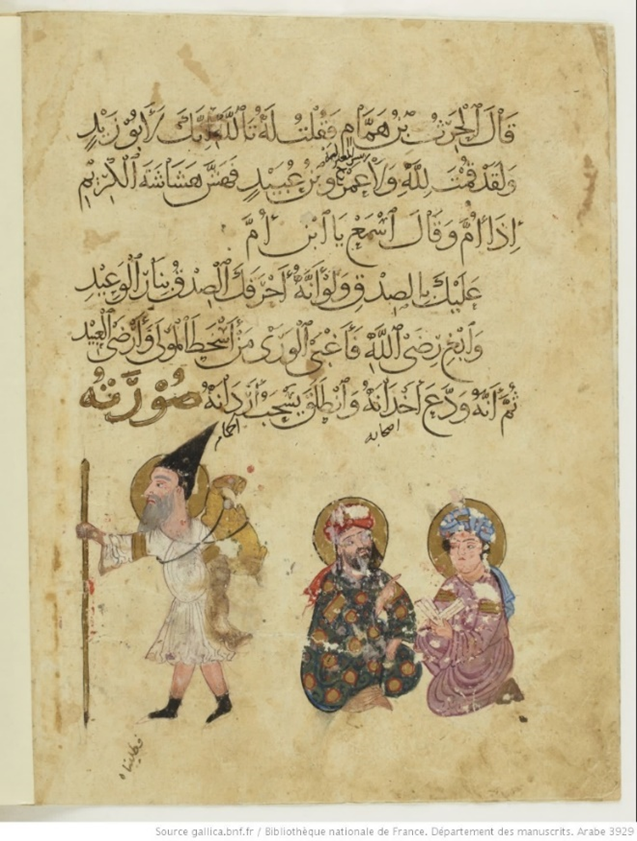 قَالَ الْحَرَثُ بْنُ هَمَّامٍ فَقُلْتُ لَهُ تَاللَّهِ إِنَّكَ لَأَبُو زَيْدٍ
وَلَقَدْ قُمْتَ لِلَّهِ وَلَا عَمْرُو بْنُ عُبَيْدٍ فَهَشَّ هَشَاشَةَ الْكَرِيمِ
إِذَا أُمَّ وَقَالَ اسْمَعْ يَا ابْنَ أُمَّ
عَلَيْكَ بِالصِّدْقِ وَلَوْ أَنَّهُ أَحْرَقَكَ الصِّدْقُ بِنَارِ الْوَعِيدِ
وَابْغِ رِضَى اللَّهِ فَأَغْبَى الْوَرَى مَنْ أَسْخَطَ الْمَوْلَى وَأَرْضَى الْعَبِيدَ
ثُمَّ أَنَّهُ وَدَّعَ أَخْدَانَهُ وَانْطَلَقَ يَسْحَبُ أَرْدَانَهُ صُورَتُهُ
اصحابه
اكمام
فطلبناه
Source gallica.bnf.fr / Bibliothèque nationale de France. Département des manuscrits. Arabe 3929